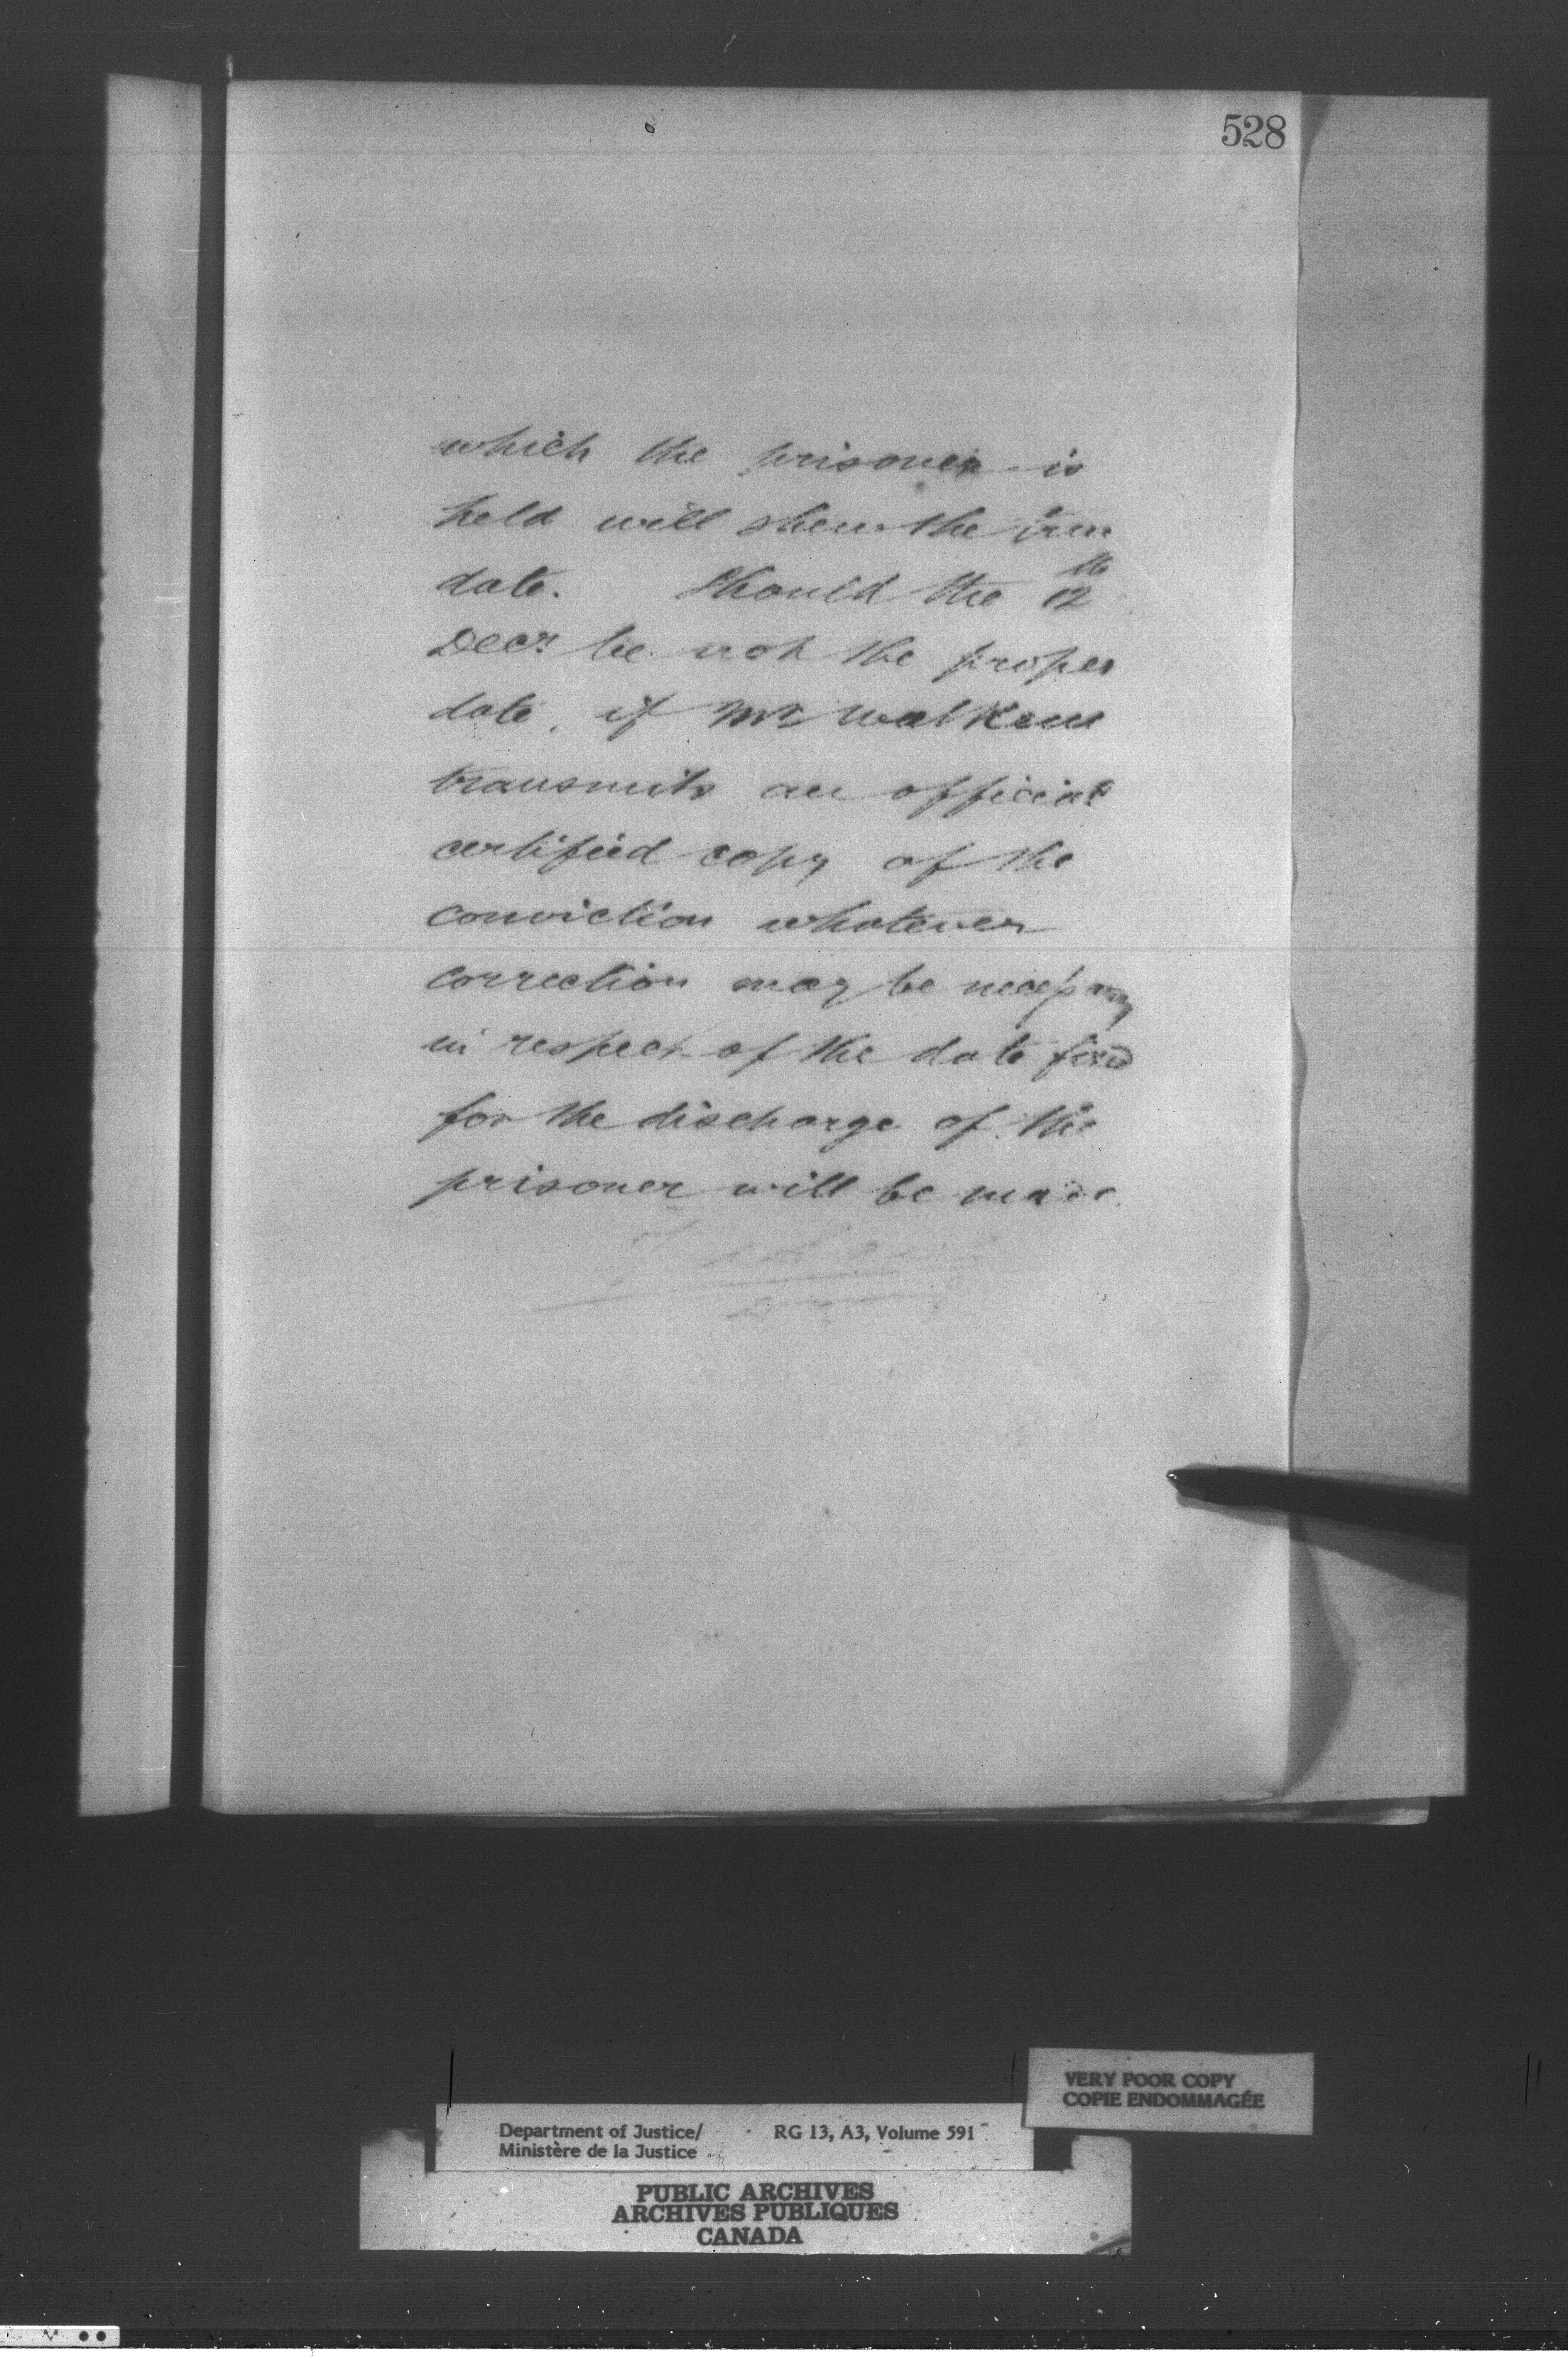 528
which the prisoner is
held will shew the true
date. Should the 12th
Decr be not the proper
date, if Mr Walkem
transmits an official
certified copy of the
conviction whatever
correction may be necessary
in respect of the date fixed
for the discharge of the
prisoner will be made.
VERY POOR COPY
COPIE ENDOMMAGÉE
Department of Justice/ RG 13, A3, Volume 591
Ministère de la Justice
PUBLIC ARCHIVES
ARCHIVES PUBLIQUES
CANADA